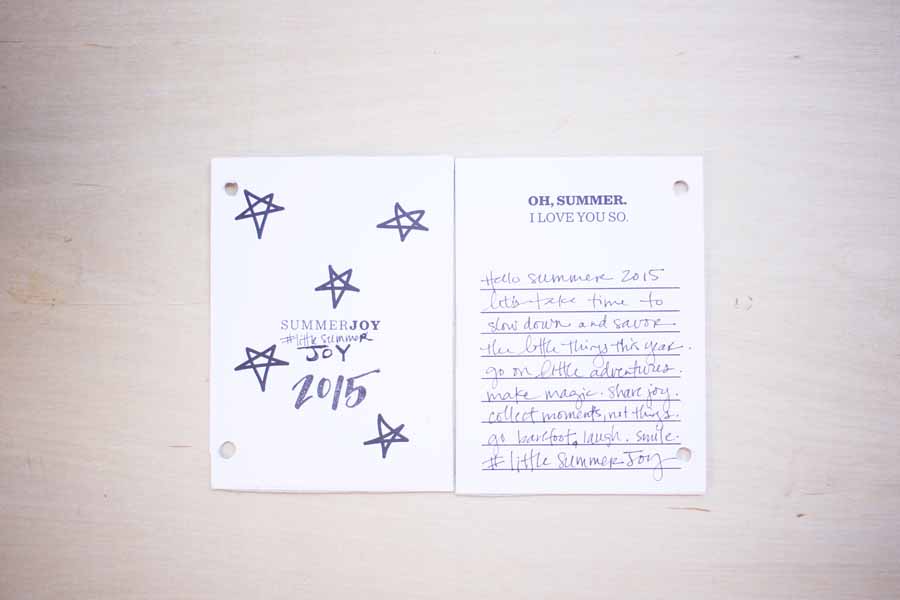 SUMMERJOY
#little summer
JOY
2015
OH, SUMMER.
I LOVE YOU SO.
Hello summer 2015
let's take time to
slow down and savor
the little things this year.
go on little adventures.
make magic. share joy.
collect moments, not things.
go barefoot, laugh. smile.
#little Summer Joy